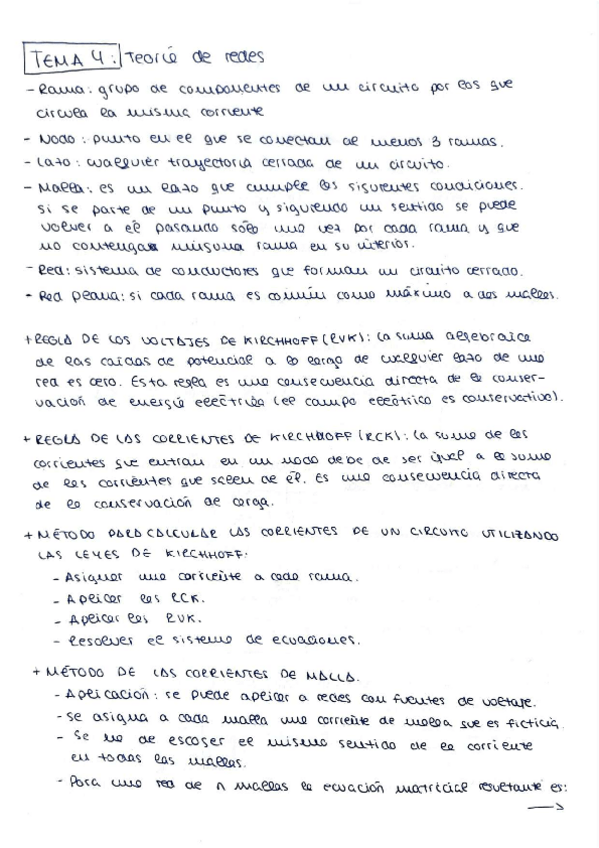 TEMA 4: Teoría de redes
- Rama: grupo de componentes de un circuito por los que
circula la misma corriente
- Nodo: punto en el que se conectan al menos 3 ramas.
- Lazo: cualquier trayectoria cerrada de un circuito.
- Malla: es un lazo que cumple los siguientes condiciones.
si se parte de un punto y siguiendo un sentido se puede
volver a él pasando sólo una vez por cada rama y que
no contengan ninguna rama en su interior.
- Red: sistema de conductores que forman un circuito cerrado.
- Red plana: si cada rama es común como máximo a dos mallas.
+ REGLA DE LOS VOLTAJES DE KIRCHHOFF (RVK): La suma algebraica
de las caídas de potencial a lo largo de cualquier lazo de una
red es cero. Esta regla es una consecuencia directa de la conser-
vación de energía eléctrica (el campo eléctrico es conservativo).
+ REGLA DE LAS CORRIENTES DE KIRCHHOFF (RCK): La suma de las
corrientes que entran en un nodo debe de ser igual a la suma
de las corrientes que salen de él. Es una consecuencia directa
de la conservación de carga.
+ MÉTODO PARA CALCULAR LAS CORRIENTES DE UN CIRCUITO UTILIZANDO
LAS LEYES DE KIRCHHOFF:
- Asignar una corriente a cada rama.
- Aplicar las RCK.
- Aplicar las RVK.
- Resolver el sistema de ecuaciones.
+ MÉTODO DE LAS CORRIENTES DE MALLA.
- Aplicación: se puede aplicar a redes con fuentes de voltaje.
- Se asigna a cada malla una corriente de malla que es ficticia.
- Se ha de escoger el mismo sentido de la corriente
en todas las mallas.
- Para una red de n mallas la ecuación matricial resultante es:
→